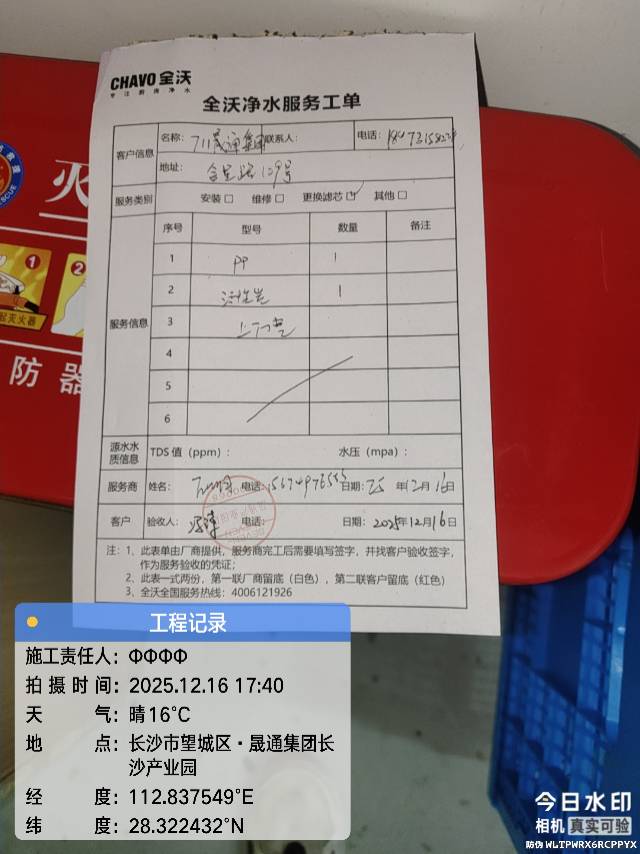 CHAVO 全沃
专注厨房净水
全沃净水服务工单
客户信息
名称： 晟通集团 联系人： 电话：
地址： 含星路109号
服务类别 安装☐ 维修☐ 更换滤芯☑ 其他☐
服务信息
序号 型号 数量 备注
1 PP 1
2 活性炭 1
3 上门费
4
5
6
源水水质信息 TDS 值（ppm）： 水压（mpa）：
服务商 姓名： 电话： 日期：25 年12月16日
客户 验收人： 电话： 日期： 2025年12月16日
注：1、此表单由厂商提供，服务商完工后需要填写签字，并找客户验收签字，
作为服务验收的凭证；
2、此表一式两份，第一联厂商留底（白色），第二联客户留底（红色）
3、全沃全国服务热线：4006121926
灭
RESCUE
1
2
防器
工程记录
施工责任人：ΦΦΦΦ
拍摄时间：2025.12.16 17:40
天气：晴16°C
地点：长沙市望城区·晟通集团长
沙产业园
经度：112.837549°E
纬度：28.322432°N
今日水印
相机 真实可验
防伪 WLTPWRX6RCPPYX